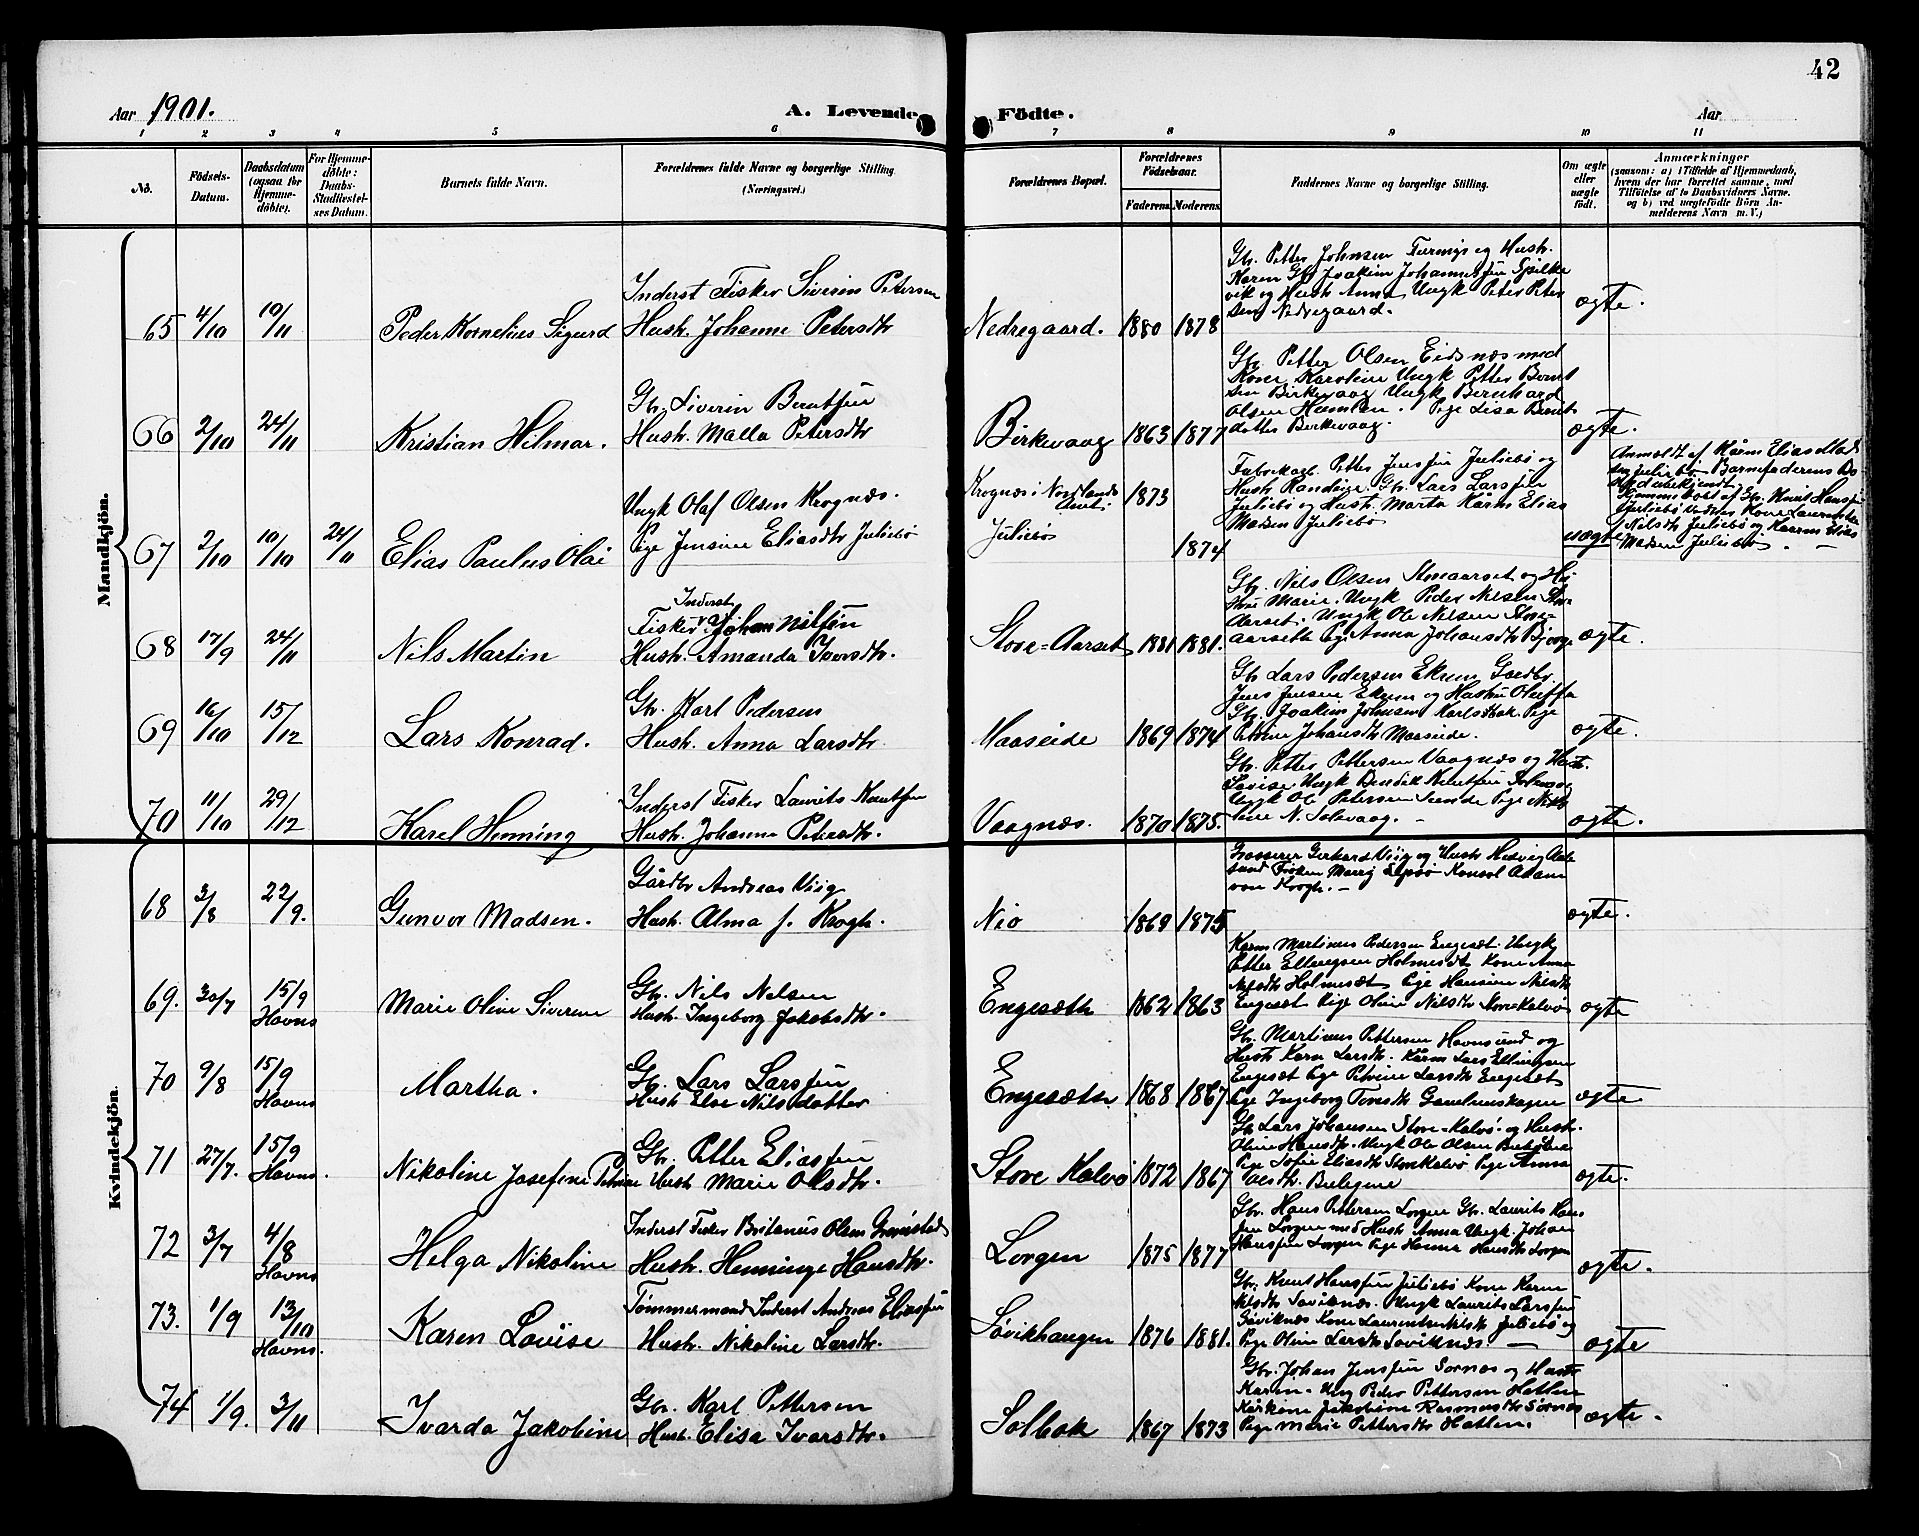 42
Aar 1901. A. Levende Födte. Aar
1 2 3 4 5 6 7 8 9 10 11
No.
Födsels-Datum.
Daabsdatum (ogsaa for Hjemmedöbte).
For Hjemmedöbte: Daabs-Stadfæstelses Datum.
Barnets fulde Navn.
Forældrenes fulde Navne og borgerlige Stilling.
(Næringsvei.)
Forældrenes Bopæl.
Forældrenes Födselsaar.
Faderens. Moderens.
Faddernes Navne og borgerlige Stilling.
Om ægte eller uægte födt.
Anmærkninger
(saasom: a) i Tilfælde af Hjemmedaab, hvem der har forrettet samme, med Tilföielse af to Daabsvidners Navne. og b) ved uægtefödte Börn Anmelderens Navn m. V.)
Mandkjön.
65 4/10 10/11 Peder Kornelius Sigurd
Inderst Fisker Siverin Petersen
Hust. Johanne Petersdtr
Nedregaard. 1880 1878
Gbr. Petter Johnsen Furmyr og Hust.
Karen Gbr Joakim Johannessen Spilke
vik og Hust Anna Ungk Peter Peter
sen Nedregaard.
ægte.
66 2/10 24/11 Kristian Hilmar.
Gbr. Siverin Berntsen
Hust. Malla Petersdtr
Birkevaag 1863 1877
Gbr. Petter Olsen Eidsnæs med
Kone Karoline Ungk Petter Bernt
sen Birkevaag Ungk Bernhard
Olsen Hamlen. Pige Lisa Bernts
datter Birkevaag.
ægte.
67 2/10 10/10 24/11 Elias Paulus Olai
Ungk Olaf Olsen Krognæs.
Pige Jensine Eliasdtr Juliebø
Krognæs i Nordlands Amt. 1873
Juliebø 1874
Fabrikarb. Petter Jensen Juliebø og
Hust Randige. Gbr. Lars Larssen
Juliebø og Hust. Marta Kårm Elias
Madsen Juliebø
uægte
Anmeldt af Kårm Elias Mad
sen Juliebø Barnefaderens
Hjemmedøbt af Gbr. Knut Hanssen
Juliebø Vidner Kone Laurentse
Nilsdtr Juliebø og Kaarm Elias
Madsen Juliebø. —
68 17/9 24/11 Nils Martin
Inderst
Fisker Johan Nilsen
Hust. Amanda Iversdtr.
Store-Aarset 1881 1881.
Gbr. Nils Olsen Storeaarset og
Marie. Ungk Peder Nilsen Store
Aarset. Ungk Ole Nilsen Store
aarseth Pg. Anna Johansdtr
ægte.
69 16/10 15/12 Lars Konrad.
Gbr. Karl Pedersen
Hust. Anna Larsdtr.
Maaseide 1869 1874
Gbr Lars Pedersen Ekrem Gaardbr.
Jens Jensen Ekrem og Hustru Oluffa
Gbr. Joakim Johnsen Karlsbak. Pige
Petrine Johansdtr Maaseide.
ægte.
70 11/10 29/12 Karel Henning
Inderst Fisker Laurits Knutsen
Hust. Johanne Petersdtr.
Vaagnæs. 1870 1875.
Gbr. Petter Pettersen Vaagnæs og Hust.
Lovise Ungk Bendik Knutsen Solevaag
Ungk Ole Petersen Sunde Pige Niko
line N. Solevaag. —
ægte.
Kvindekjön.
68 3/8 22/9. Gunvor Madsen.
Gårdbr Andreas Viig
Hust. Alma f. Krogh.
Nio 1869 1875
Grosserer Gerhard Viig og Hust Hedvig Aale
sund Frøken Marry Konsul Adam
von Krogh. —
ægte.
69. 30/7 15/9 Havns Marie Oline Siverine
Gbr. Nils Nilsen
Hust. Ingeborg Jakobsdtr.
Engesæth 1862 1863
Kårm Martinus Pedersen Engesæt. Ungk
Petter Ellingsen Holmesæt Kone Anna
Nilsdtr Holmesæt Pige Hansine Nilsdtr
Engesæt Pige Oline Nilsdtr Storekalvø
ægte
70 9/8 15/9 Havns Martha.
Gbr. Lars Larssen
Hust Else Nilsdatter
Engesæth 1868 1867
Gbr. Martinus Pettersen Havnsund og
Hust Karn Larsdtr. Kårm Lars Ellingsen
Engesæt Pige Petrine Larsdtr Engesæt
Pige Ingeborg Tomsdtr Gamlemskagen
ægte
71 27/7. 15/9 Havns. Nikoline Josefine Petrine
Gbr. Petter Eliassen
Hust Marie Olsdtr.
Store Kalvø 1872 1867
Gbr Lars Johansen Store-Kalvø og Hust.
Oline Hansdtr. Ungk Ole Olsen
Pige Sofie Eliasdtr Storekalvø Pige Anna
Olsdtr.
ægte.
72 3/7 4/8 Havns Helga Nikoline
Inderst Fisker Britanus Olsen Grønstad
Hust. Henninge Hansdtr.
Lorgen 1875 1877
Gbr. Hans Pettersen Lorgen Gbr. Laurits Hans
sen Lorgen med Hust Anna Ungk Johan
Hanssen Lorgen Pige Hanna Hansdtr Lorgen
ægte.
73. 1/9 13/10 Havns. Karen Lovise
Tømmermand Inderst Andreas Eliassen
Hust. Nikoline Larsdtr.
Søvikhaugen 1876 1881.
Gbr. Knut Hanssen Juliebø Kone Karen
Nilsdtr Søviknæs. Ungk Laurits Larssen
Søviknæs Kone Laurentse Nilsdtr Juliebø og
Pige Oline Larsdtr Søviknæs. —
ægte
74 1/9. 3/11 Ivarda Jakobine
Gbr. Karl Pettersen
Hust. Elisa Ivarsdtr.
Solbak 1867 1873
Gbr. Johan Jenssen Sørnæs og Hust
Karen. Ung Peder Pettersen Hatlen
Jakobine Rasmusdtr Sørnæs
Pige Marie Pettersdtr Hatlen.
ægte.